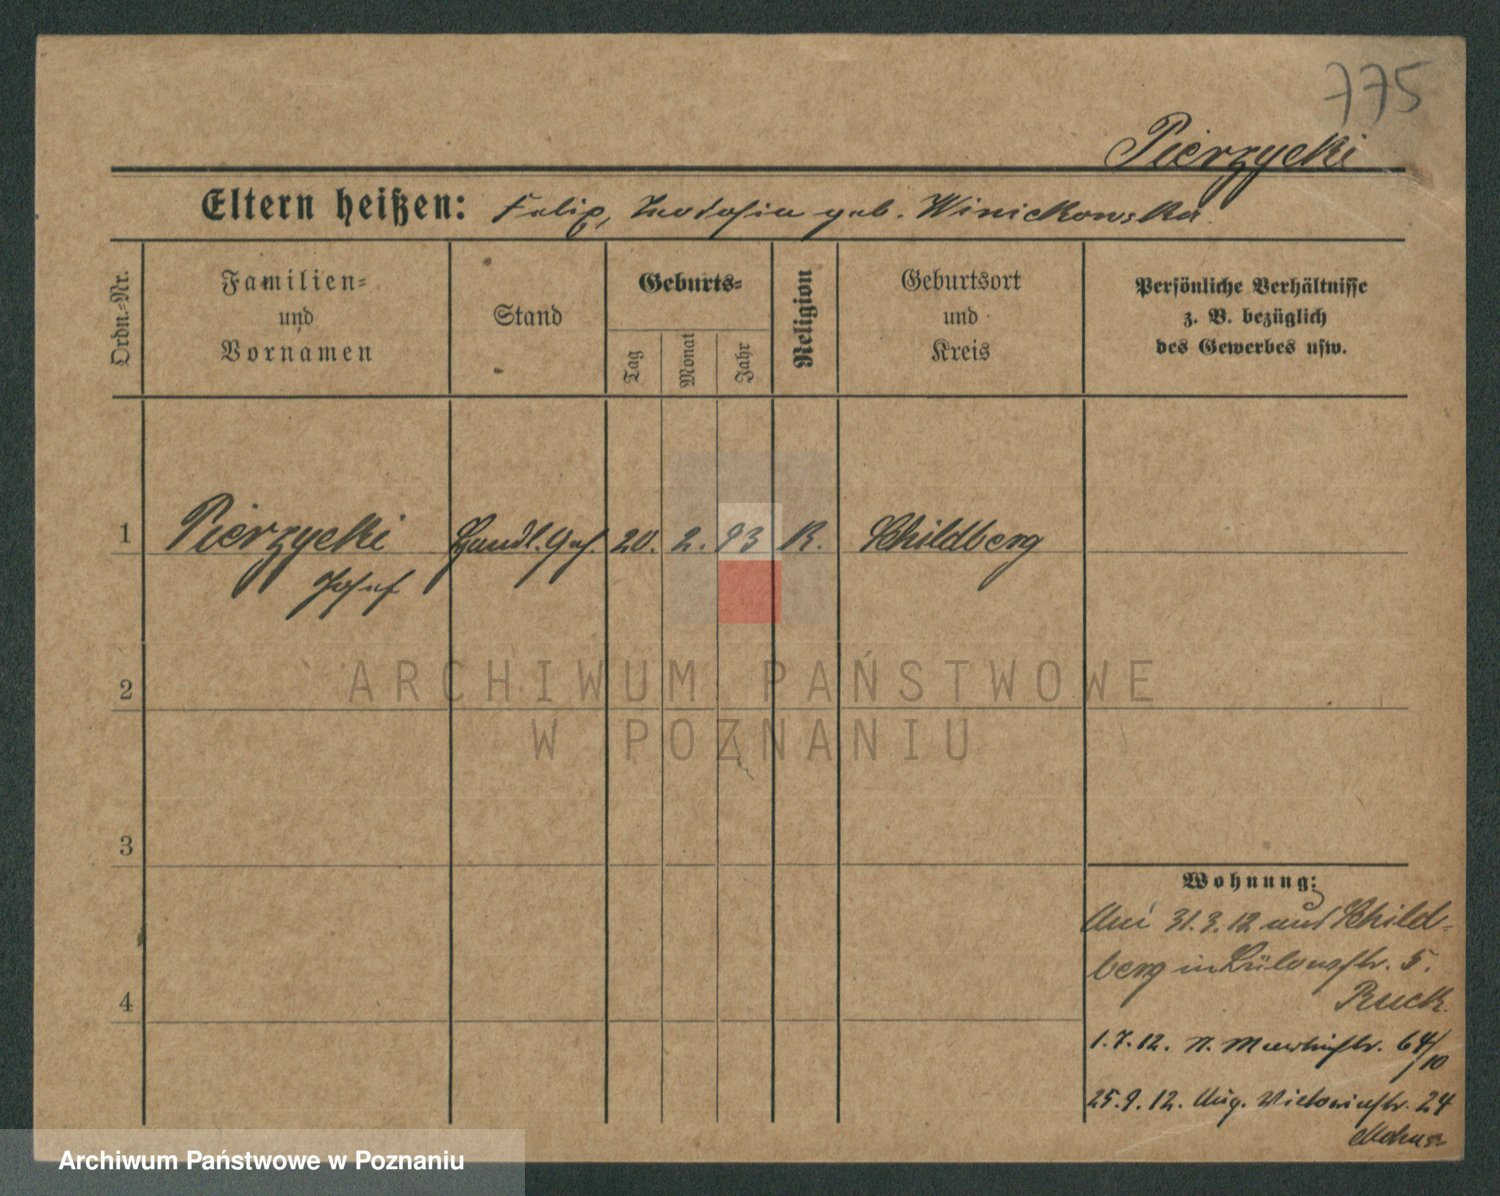 775
Pierzycki
Eltern heißen: Felix, Teodosia geb. Winickowska.
Ordn.-Nr.
Familien-
und
Vornamen
Stand
Geburts-
Tag
Monat
Jahr
Religion
Geburtsort
und
Kreis
Persönliche Verhältnisse
z. B. bezüglich
des Gewerbes usw.
1 Pierzycki Handl. Geh. 20. 2. 93 K. Schildberg
Josef
2
3
4
Wohnung:
31.3.12 aus Schild-
berg in 5.
1.7.12. n. Martinstr. 64/10
25.9.12. Victoriastr. 24
ARCHIWUM PAŃSTWOWE
W POZNANIU
Archiwum Państwowe w Poznaniu